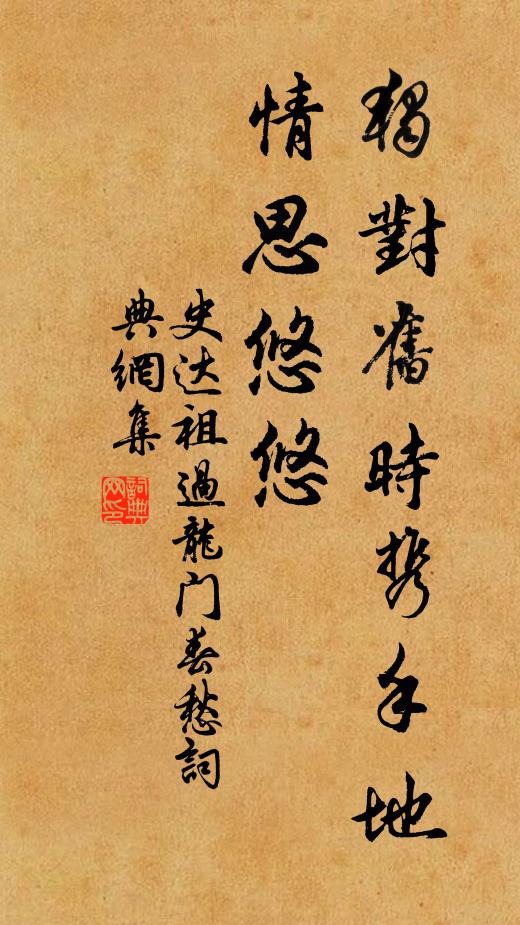 獨對舊時攜手地
情思悠悠
史达祖過龍门春愁詞
典網集
詞典网印